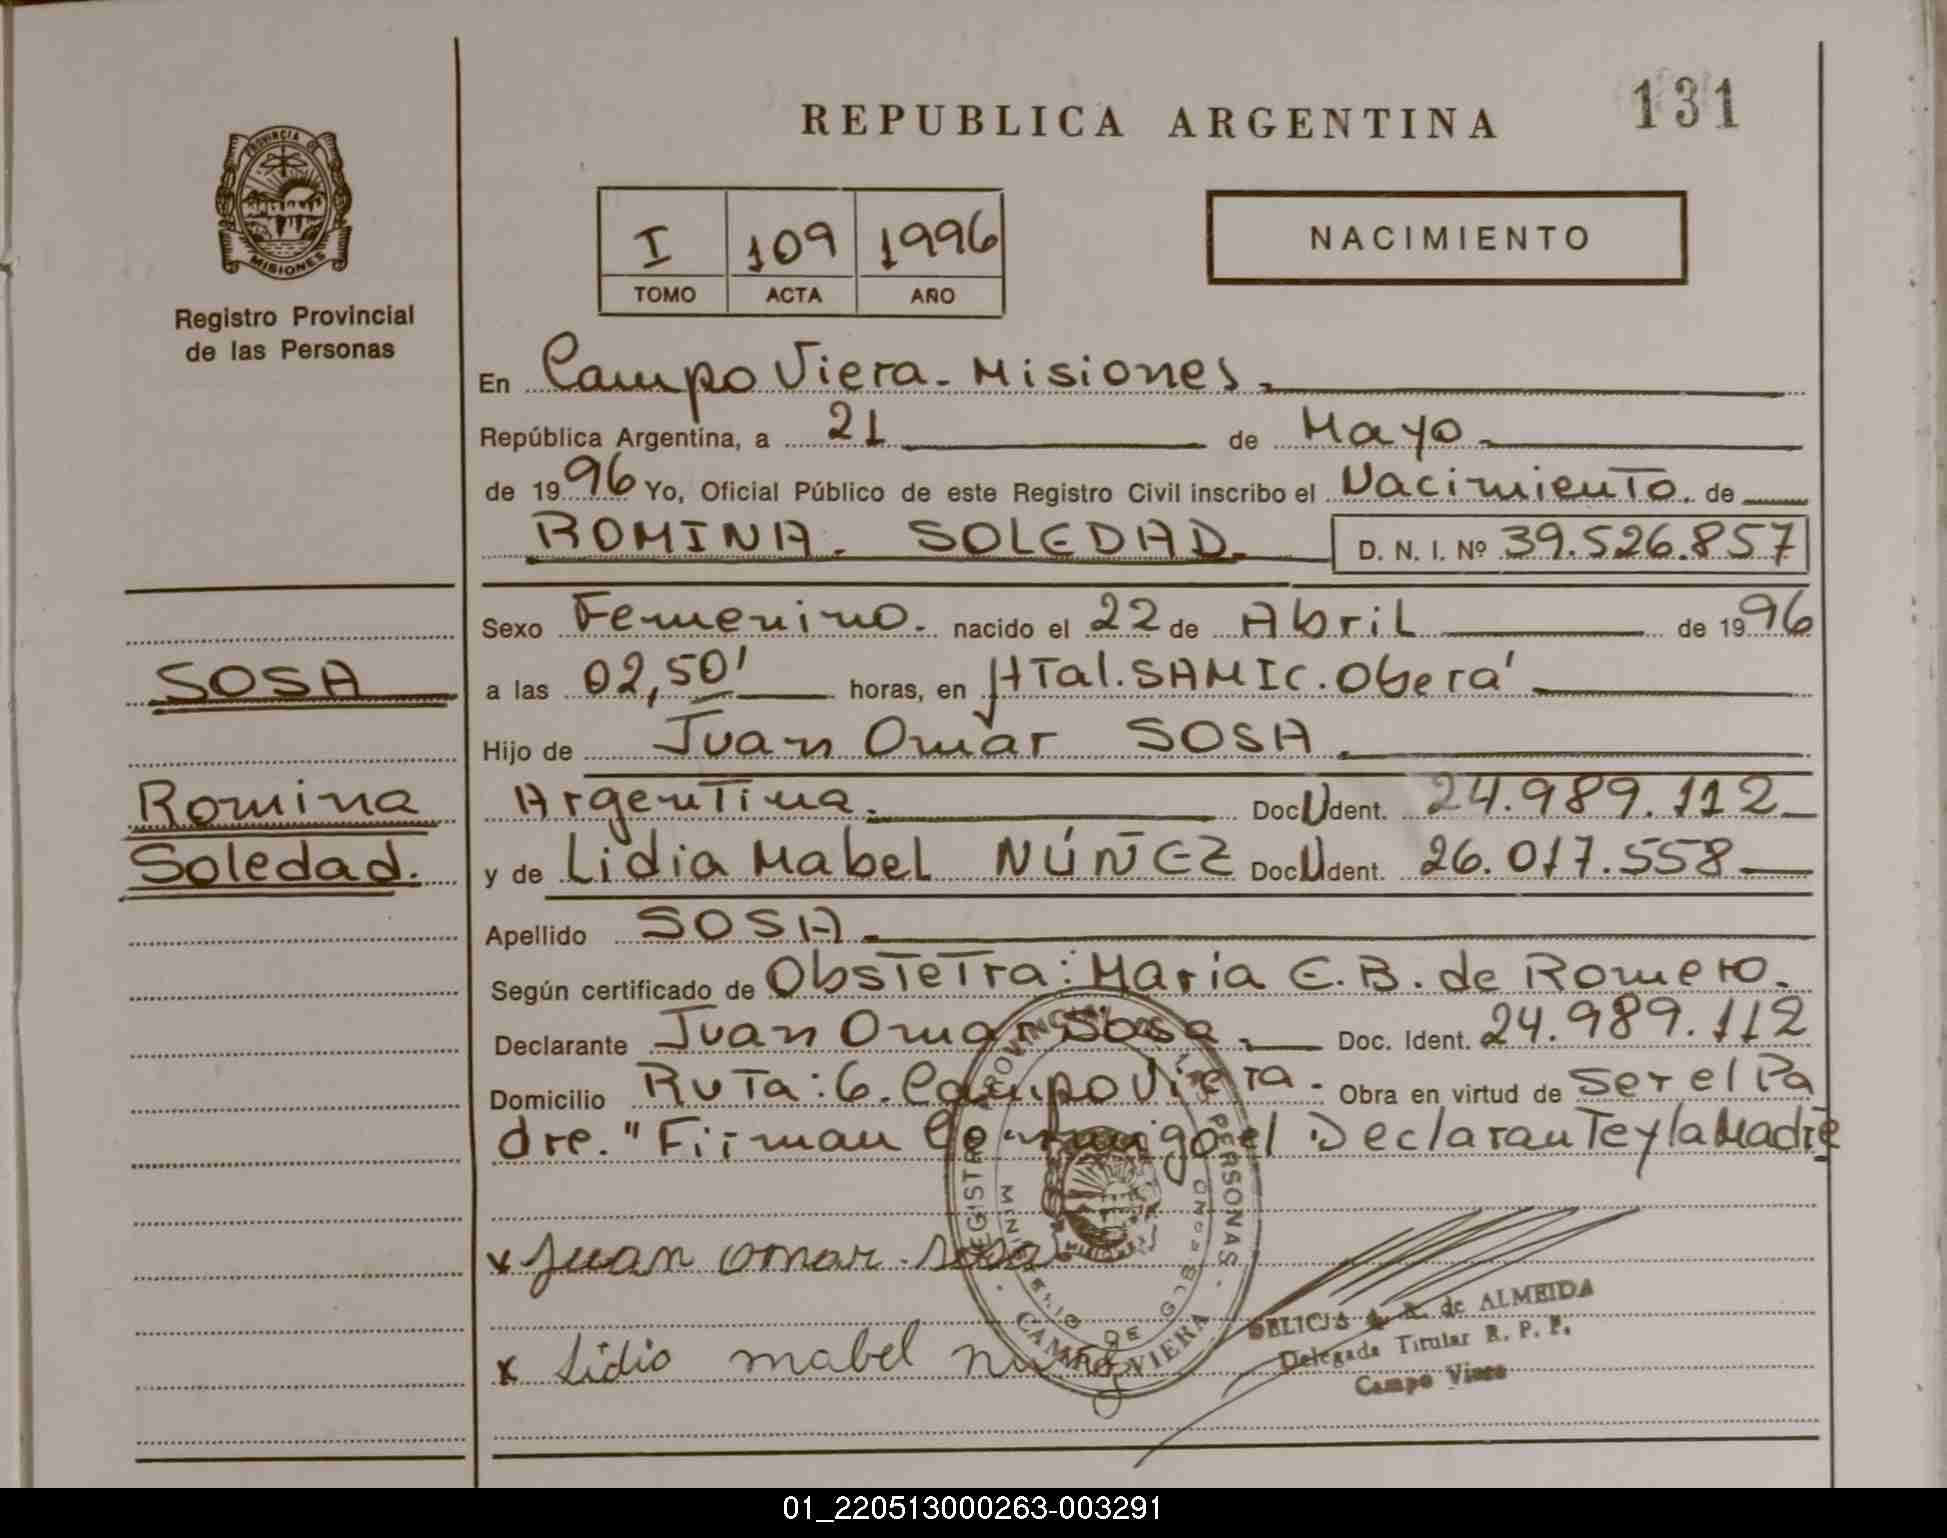 131
REPUBLICA ARGENTINA
PROVINCIA DE
MISIONES
Registro Provincial
de las Personas
I 109 1996
TOMO ACTA AÑO
NACIMIENTO
En Campo Viera - Misiones.
República Argentina, a 21 de Mayo
de 1996 Yo, Oficial Público de este Registro Civil inscribo el Nacimiento de
ROMINA SOLEDAD. D. N. I. Nº 39.526.857
Sexo Femenino. nacido el 22 de Abril de 1996
SOSA
a las 02,50' horas, en HTal. SAMIC. Oberá
Hijo de Juan Omar SOSA.
Romina
Argentina. Doc U dent. 24.989.112
Soledad.
y de Lidia Mabel NÚÑEZ Doc U dent. 26.017.558
Apellido SOSA
Según certificado de Obstetra: Maria E. B. de Romero.
Declarante Juan Omar Sosa. Doc. Ident. 24.989.112
Domicilio Ruta: 6. Campo Viera. Obra en virtud de Ser el Pa
dre. "Firman Conmigo el Declarante y la Madre
REGISTRO PROVINCIAL DE LAS PERSONAS
MINISTERIO DE GOBIERNO
CAMPO VIERA
x Juan omar sosa
DELICIA A. R. de ALMEIDA
Delegada Titular R. P. P.
Campo Viera
x Lidia mabel nuñez
01_220513000263-003291